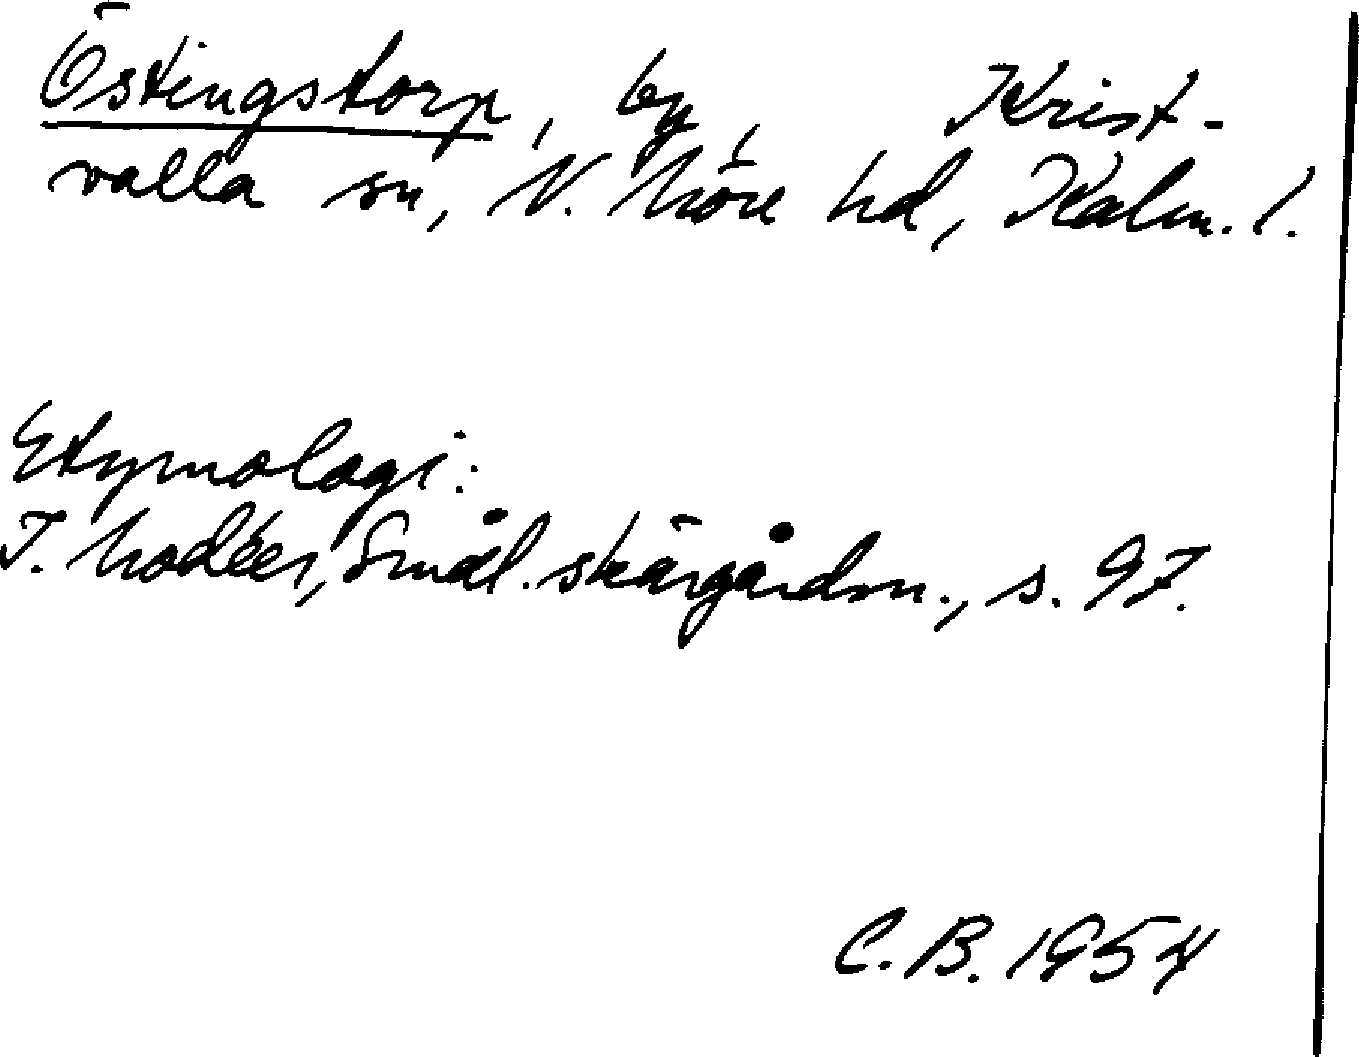 Östingstorp, by, Krist-
valla sn, N. Möre hd, Kalm. l.
Etymologi:
I. Modéer, Smål. skärgårdsn., s. 97.
C.B. 1954